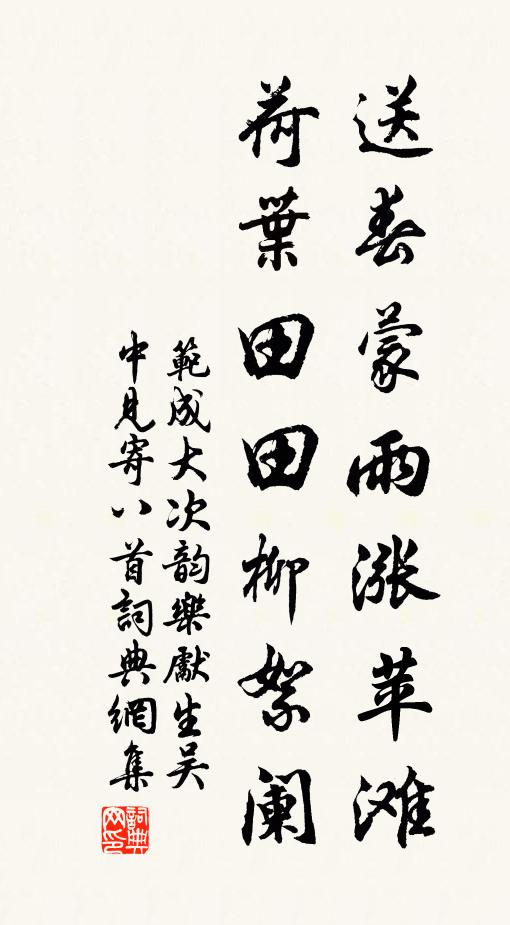 送春蒙雨漲苹滩
荷葉田田柳絮阑
範成大次韵樂獻生吴
中見寄八首詞典網集
詞典网印